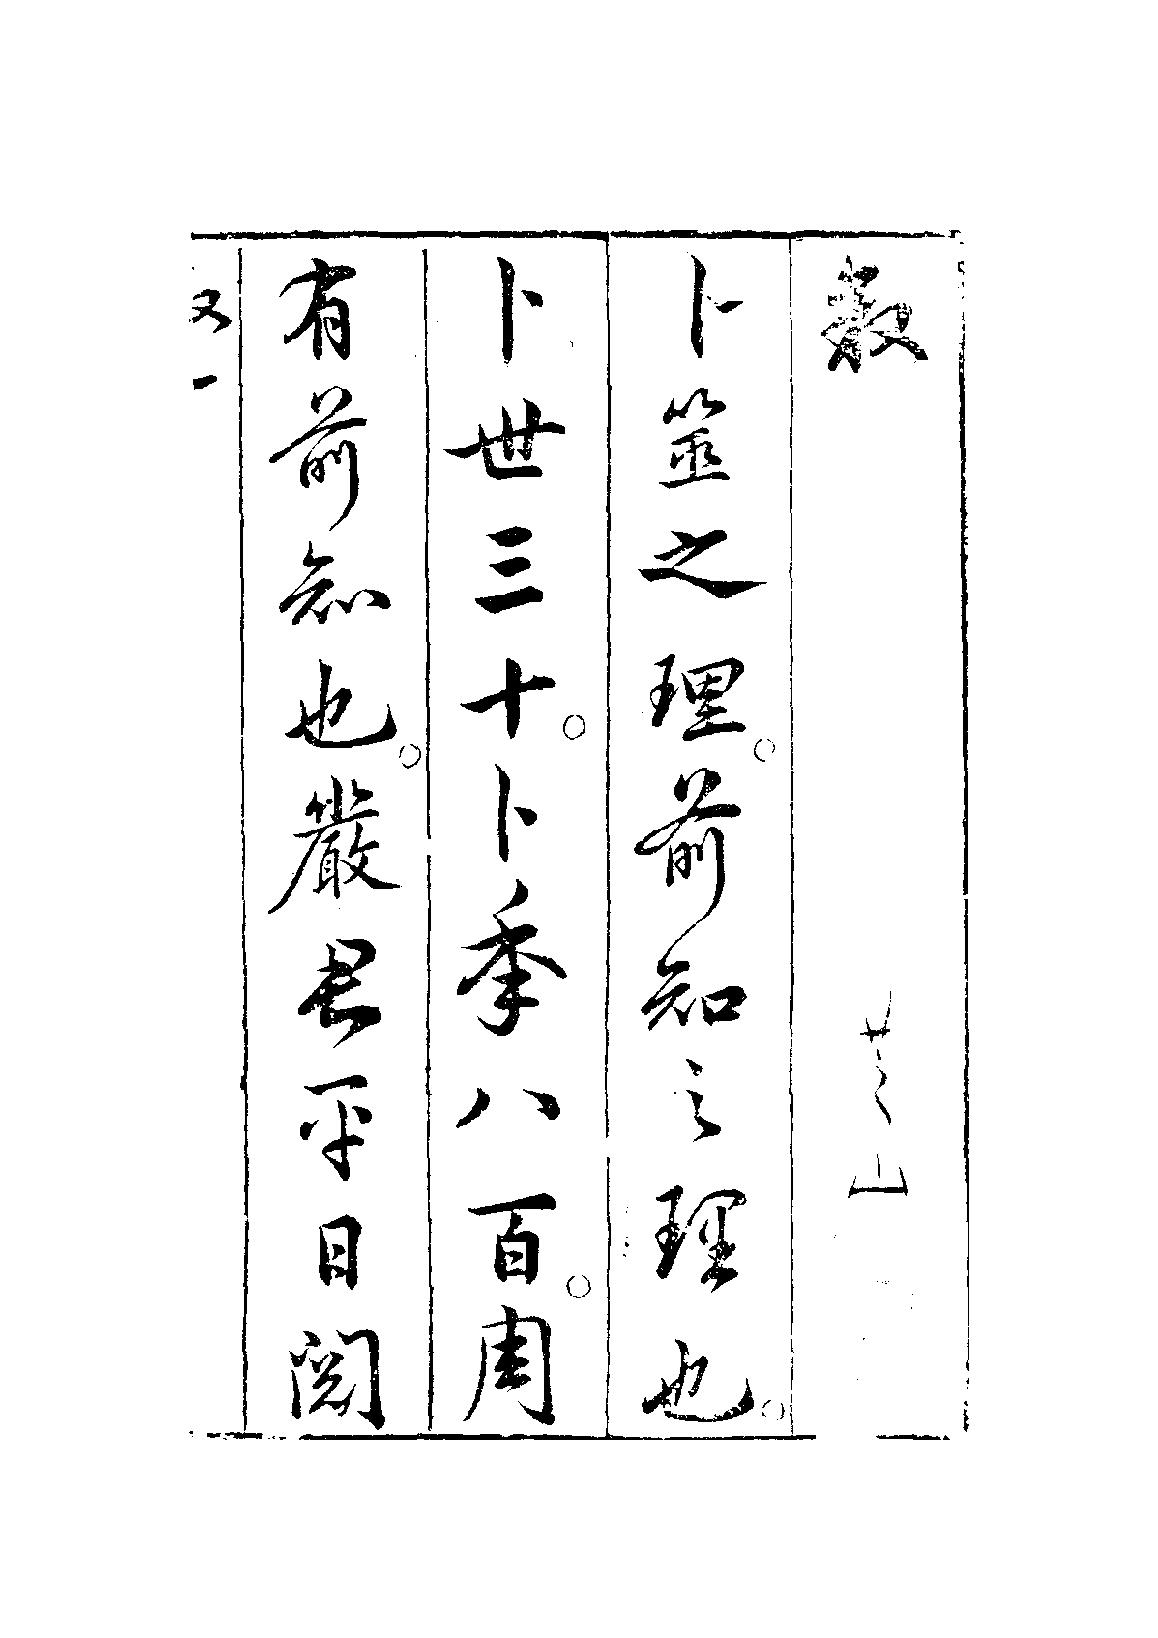 叙 芝山
卜筮之理前知之理也
卜世三十卜秊八百周
有前知也嚴君平日閱
又一